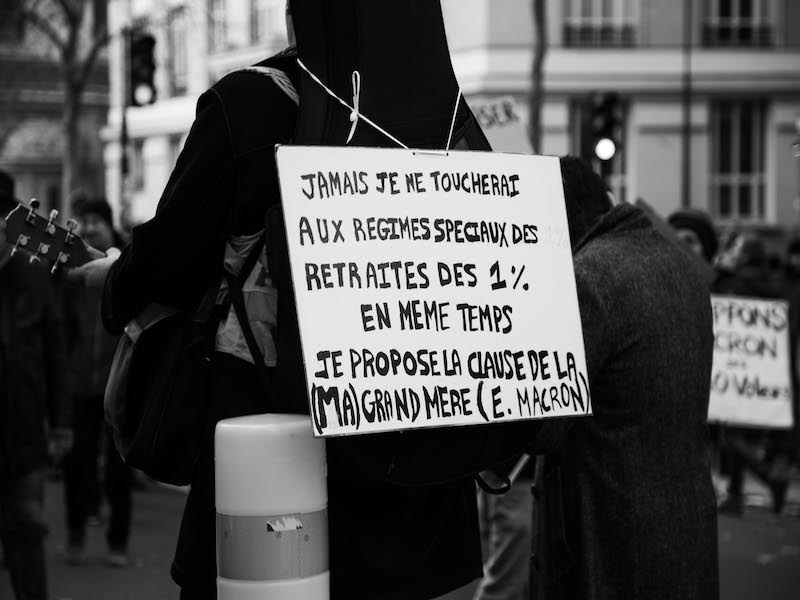 JAMAIS JE NE TOUCHERAI
AUX REGIMES SPECIAUX DES
RETRAITES DES 1%
EN MEME TEMPS
JE PROPOSE LA CLAUSE DE LA
(MA) GRAND MERE (E. MACRON)
SER
PPONS
CRON